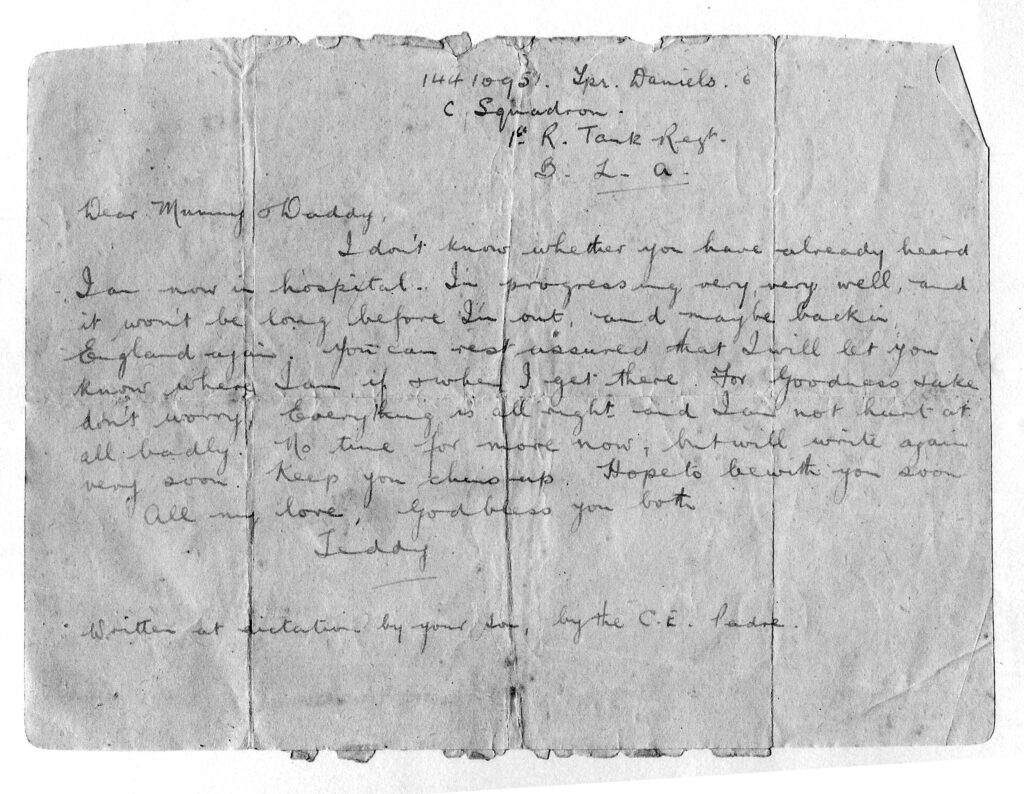 14410951. Tpr. Daniels. 6
C Squadron.
1st R. Tank Regt.
B. L. A.
Dear Mummy & Daddy,
I don't know whether you have already heard
I am now in hospital. I'm progressing very, very well, and
it won't be long before I'm out, and maybe back in
England again. You can rest assured that I will let you
know where I am if & when I get there. For Goodness sake
don't worry, Everything is all right and I am not hurt at
all badly. No time for more now, but will write again
very soon. Keep you chins up. Hope to be with you soon
All my love, God bless you both
Teddy
Written at dictation by your son, by the C.E. Padre.